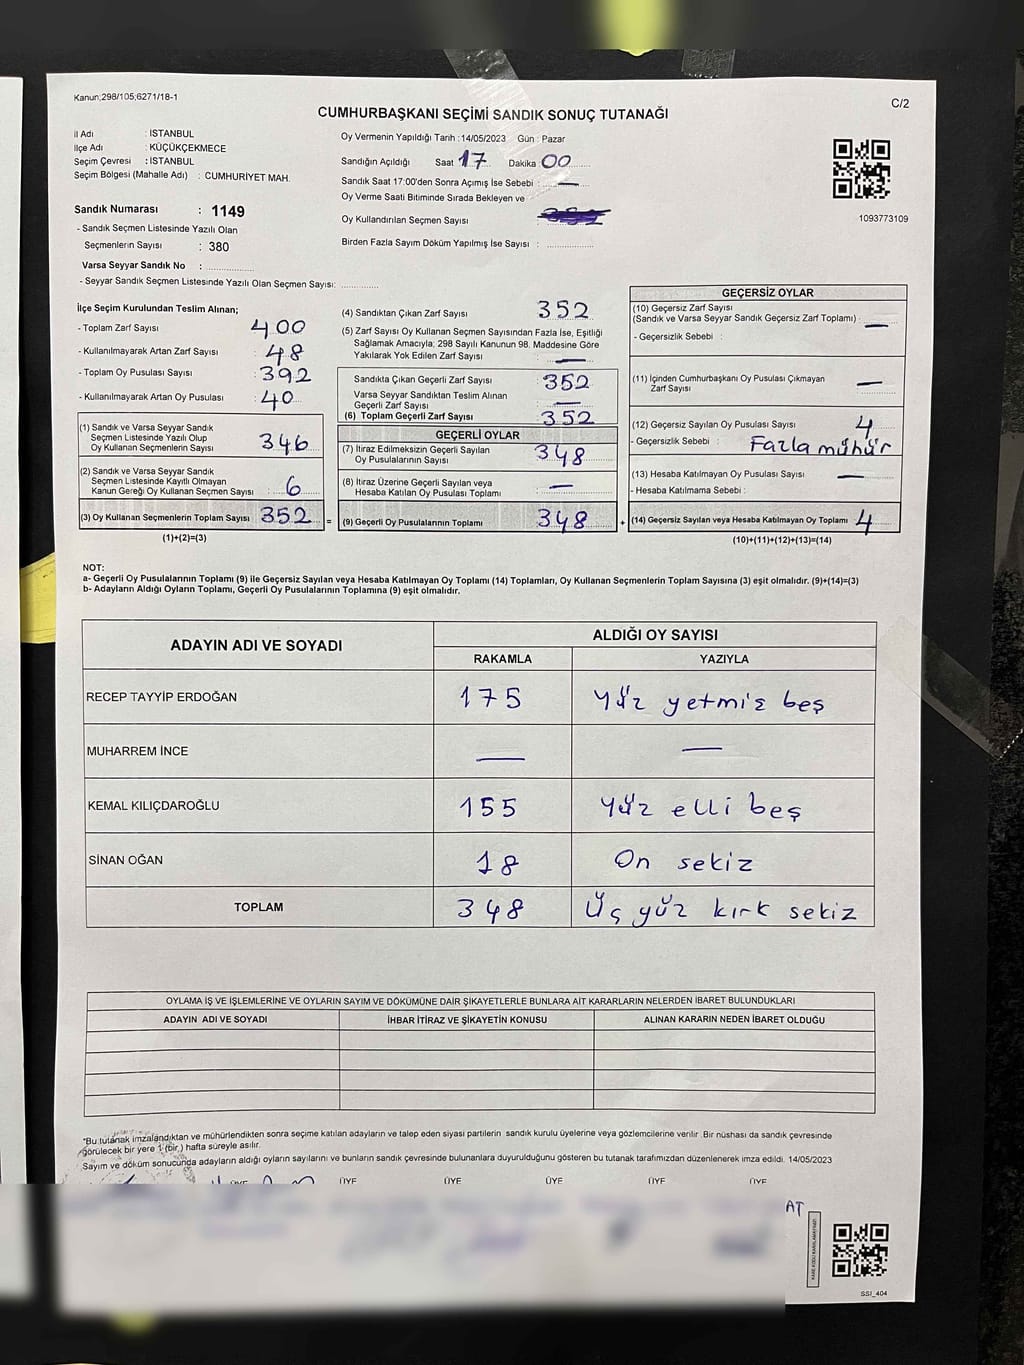 Kanun;298/105;6271/18-1
C/2
CUMHURBAŞKANI SEÇİMİ SANDIK SONUÇ TUTANAĞI
İl Adı : İSTANBUL
İlçe Adı : KÜÇÜKÇEKMECE
Seçim Çevresi : İSTANBUL
Seçim Bölgesi (Mahalle Adı) : CUMHURİYET MAH.
Sandık Numarası : 1149
- Sandık Seçmen Listesinde Yazılı Olan
Seçmenlerin Sayısı : 380
Varsa Seyyar Sandık No :
- Seyyar Sandık Seçmen Listesinde Yazılı Olan Seçmen Sayısı:
Oy Vermenin Yapıldığı Tarih : 14/05/2023 Gün : Pazar
Sandığın Açıldığı Saat 17 Dakika : 00
Sandık Saat 17:00'den Sonra Açımış İse Sebebi : —
Oy Verme Saati Bitiminde Sırada Bekleyen ve
Oy Kullandırılan Seçmen Sayısı :
Birden Fazla Sayım Döküm Yapılmış İse Sayısı :
1093773109
İlçe Seçim Kurulundan Teslim Alınan;
- Toplam Zarf Sayısı : 400
- Kullanılmayarak Artan Zarf Sayısı : 48
- Toplam Oy Pusulası Sayısı : 392
- Kullanılmayarak Artan Oy Pusulası : 40
(1) Sandık ve Varsa Seyyar Sandık
Seçmen Listesinde Yazılı Olup
Oy Kullanan Seçmenlerin Sayısı : 346
(2) Sandık ve Varsa Seyyar Sandık
Seçmen Listesinde Kayıtlı Olmayan
Kanun Gereği Oy Kullanan Seçmen Sayısı : 6
(3) Oy Kullanan Seçmenlerin Toplam Sayısı 352 =
(1)+(2)=(3)
(4) Sandıktan Çıkan Zarf Sayısı : 352
(5) Zarf Sayısı Oy Kullanan Seçmen Sayısından Fazla İse, Eşitliği
Sağlamak Amacıyla; 298 Sayılı Kanunun 98. Maddesine Göre
Yakılarak Yok Edilen Zarf Sayısı : —
Sandıkta Çıkan Geçerli Zarf Sayısı : 352
Varsa Seyyar Sandıktan Teslim Alınan
Geçerli Zarf Sayısı : —
(6) Toplam Geçerli Zarf Sayısı : 352
GEÇERLİ OYLAR
(7) İtiraz Edilmeksizin Geçerli Sayılan
Oy Pusulalarının Sayısı : 348
(8) İtiraz Üzerine Geçerli Sayılan veya
Hesaba Katılan Oy Pusulası Toplamı : —
(9) Geçerli Oy Pusulalarının Toplamı : 348 +
GEÇERSİZ OYLAR
(10) Geçersiz Zarf Sayısı
(Sandık ve Varsa Seyyar Sandık Geçersiz Zarf Toplamı) : —
- Geçersizlik Sebebi :
(11) İçinden Cumhurbaşkanı Oy Pusulası Çıkmayan
Zarf Sayısı : —
(12) Geçersiz Sayılan Oy Pusulası Sayısı : 4
- Geçersizlik Sebebi : Fazla mühür
(13) Hesaba Katılmayan Oy Pusulası Sayısı : —
- Hesaba Katılmama Sebebi :
(14) Geçersiz Sayılan veya Hesaba Katılmayan Oy Toplamı : 4
(10)+(11)+(12)+(13)=(14)
NOT:
a- Geçerli Oy Pusulalarının Toplamı (9) ile Geçersiz Sayılan veya Hesaba Katılmayan Oy Toplamı (14) Toplamları, Oy Kullanan Seçmenlerin Toplam Sayısına (3) eşit olmalıdır. (9)+(14)=(3)
b- Adayların Aldığı Oyların Toplamı, Geçerli Oy Pusulalarının Toplamına (9) eşit olmalıdır.
ADAYIN ADI VE SOYADI ALDIĞI OY SAYISI
RAKAMLA YAZIYLA
RECEP TAYYİP ERDOĞAN 175 Yüz yetmiş beş
MUHARREM İNCE — —
KEMAL KILIÇDAROĞLU 155 Yüz elli beş
SİNAN OĞAN 18 On sekiz
TOPLAM 348 Üç yüz kırk sekiz
OYLAMA İŞ VE İŞLEMLERİNE VE OYLARIN SAYIM VE DÖKÜMÜNE DAİR ŞİKAYETLERLE BUNLARA AİT KARARLARIN NELERDEN İBARET BULUNDUKLARI
ADAYIN ADI VE SOYADI İHBAR İTİRAZ VE ŞİKAYETİN KONUSU ALINAN KARARIN NEDEN İBARET OLDUĞU
*Bu tutanak imzalandıktan ve mühürlendikten sonra seçime katılan adayların ve talep eden siyasi partilerin sandık kurulu üyelerine veya gözlemcilerine verilir. Bir nüshası da sandık çevresinde
görülecek bir yere 1 (bir) hafta süreyle asılır.
Sayım ve döküm sonucunda adayların aldığı oyların sayılarını ve bunların sandık çevresinde bulunanlara duyurulduğunu gösteren bu tutanak tarafımızdan düzenlenerek imza edildi. 14/05/2023
ÜYE ÜYE ÜYE ÜYE ÜYE ÜYE
AT
SSI_404